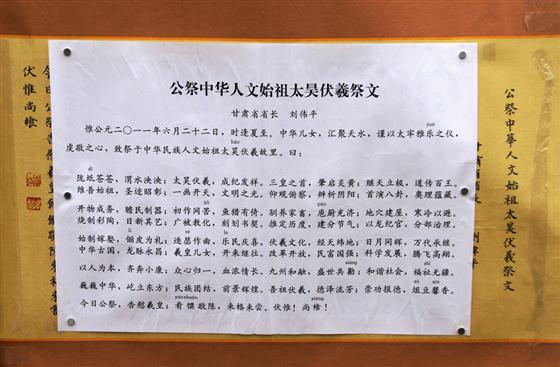 公祭中华人文始祖太昊伏羲祭文
甘肃省省长 刘伟平
yuè
惟公元二〇一一年六月二十二日，时逢夏至。中华儿女，汇聚天水，谨以太牢雅乐之仪，
hào
虔敬之心，致祭于中华民族人文始祖太昊伏羲故里。曰：
dǐ
陇坻苍苍，渭水泱泱；太昊伏羲，成纪发祥。三皇之首，肇启炎黄；继天立极，道传百王。
维吾始祖，圣迹昭彰；一画开天，文明之光。仰观俯察，辨析阴阳；首演八卦，奥理蕴藏。
gǔ páo
开物成务，赡民制器；初作网罟，鱼猎有倚。驯养家畜，庖厨充济；地穴建屋，寒冷以避。
烧制彩陶，日新其艺；广被教化，刻划书契。推定历度，建分节气；以龙纪官，分部治理。
始制嫁娶，俪皮为礼；造瑟作曲，乐民庆喜。伏羲文化，经天纬地；日月同辉，万代承继。
中华古国，龙脉永昌；羲皇儿女，开来继往。改革开放，民富国强；科学发展，腾飞高翔。
以人为本，齐奔小康；众心归一，血浓情长。九州和融，盛世共勷；和谐社会，福祉无疆。
巍巍中华，屹立东方；民族团结，前景辉煌。吾祖伏羲，德泽流芳；崇功报德，俎豆馨香。
今日公祭，告慰羲皇；肴馔敬陈，来格来尝。伏惟！尚飨！
公祭中華人文始祖太昊伏羲祭文
伏惟尚飨